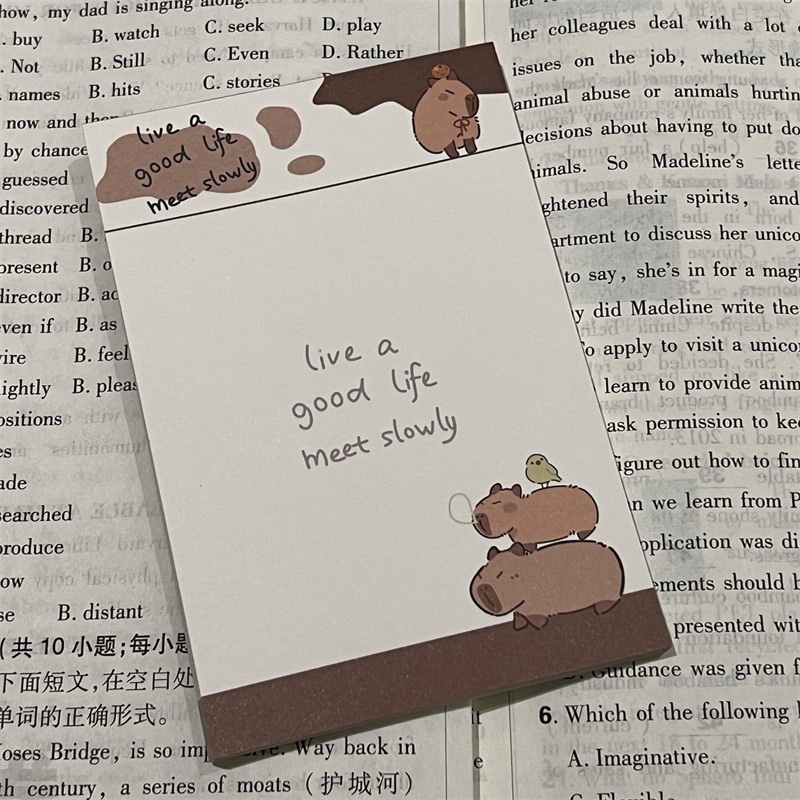 how, my dad is singing along.
. buy B. watch C. seek D. play
. Not B. Still C. Even D. Rather
names B. hits C. stories
now and then
by chance
guessed
discovered
thread B.
present B. o
director B. ac
even if B. as
wire B. feel
lightly B. pleas
ositions
es
ade
searched
produce
ow
se B. distant
(共 10 小题;每小题
下面短文,在空白处
单词的正确形式。
Moses Bridge, is so impressive. Way back in
th century, a series of moats (护城河)
live a
good life
meet slowly
live a
good life
meet slowly
her colleagues deal with a lot
issues on the job, whether tha
animal abuse or animals hurtin
decisions about having to put do
nimals. So Madeline's lette
ghtened their spirits, and
artment to discuss her unico
to say, she's in for a magi
y did Madeline write the
To apply to visit a unicor
learn to provide anim
ask permission to kee
figure out how to fin
n we learn from P
pplication was di
ements should b
presented wit
D. Guidance was given f
6. Which of the following
A. Imaginative.
C. Flexible